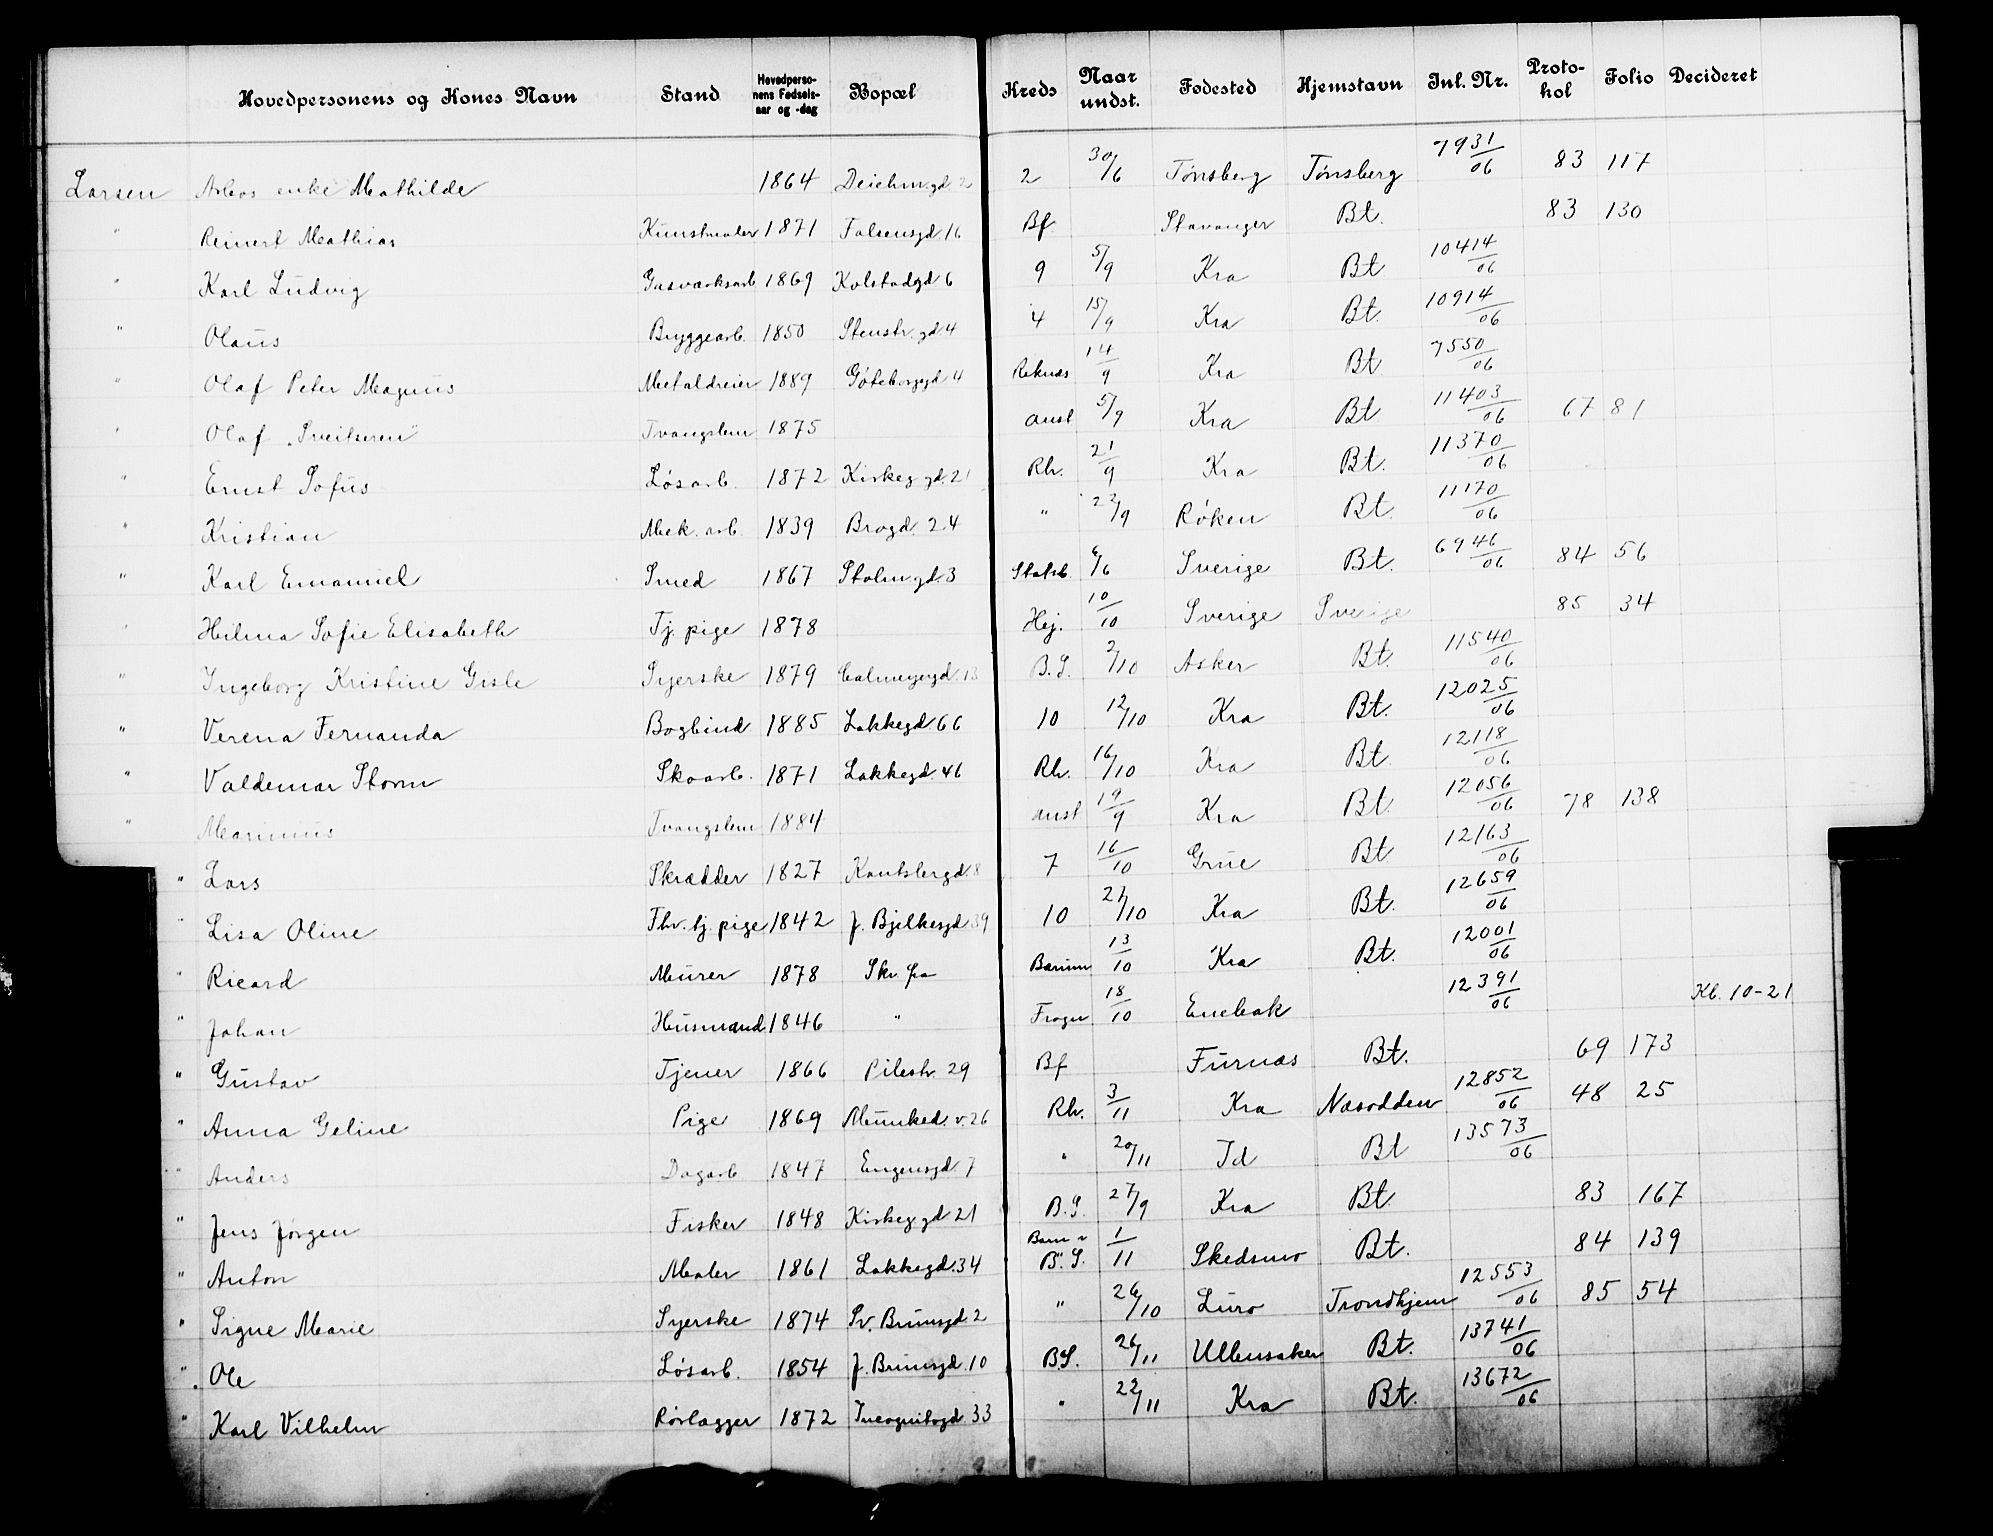 Hovedpersonens og Kones Navn | Stand | Hovedpersonens Fødselsaar og -dag | Bopæl | Kreds | Naar undst. | Fødested | Hjemstavn | Inl. Nr. | Protokol | Folio | Decideret
Larsen | enke Mathilde | 1864 | Deichm.gd 2 | 2 | 30/6 | Tønsberg | Tønsberg | 7931/06 | 83 | 117
" | Reinert Mathias | Kunstmaler | 1871 | Falsensgd. 16 | Bf | Stavanger | Bt. | 83 | 130
" | Karl Ludvig | Gasværksarb | 1869 | Kolstadgd 6 | 9 | 5/9 | Kra | Bt | 10414/06
" | Olaus | Bryggearb. | 1850 | Stenstr. gd 4 | 4 | 15/9 | Kra | Bt. | 10914/06
" | Olaf Peter Magnus | Metaldreier | 1889 | Göteborggd 4 | Reknæs | 14/9 | Kra | Bt | 7550/06
" | Olaf "Sveitseren" | Tvangslem | 1875 | Anst | 5/9 | Kra | Bt | 11403/06 | 67 | 81
" | Ernst Sofus | Løsarb. | 1872 | Kirkeg gd. 21 | Rh. | 21/9 | Kra | Bt. | 11370/06
" | Kristian | Mek. arb. | 1839 | Brogd. 24 | " | 22/9 | Røken | Bt. | 11170/06
" | Karl Emanuel | Smed | 1867 | Stolm.gd. 3 | Statsb. | 6/6 | Sverige | Bt. | 6946/06 | 84 | 56
" | Hilma Sofie Elisabeth | Tj. pige | 1878 | Hej. | 10/10 | Sverige | Sverige | 85 | 34
" | Ingeborg Kristine Gisle | Syerske | 1879 | Calmeyergd. 13 | B.S. | 2/10 | Asker | Bt. | 11540/06
" | Verena Fernanda | Bogbind. | 1885 | Lakkegd. 66 | 10 | 12/10 | Kra | Bt. | 12025/06
" | Valdemar Storm | Skoarb. | 1871 | Lakkegd. 46 | Rh. | 16/10 | Kra | Bt. | 12118/06
" | Marinius | Tvangslem | 1884 | Anst | 19/9 | Kra | Bt. | 12056/06 | 78 | 138
" | Lars | Skrædder | 1827 | Kantslergd. 8 | 7 | 16/10 | Grue | Bt. | 12163/06
" | Lisa Oline | Fhv. tj. pige | 1842 | J. Bjelkesgd 39 | 10 | 27/10 | Kra | Bt. | 12659/06
" | Ricard | Murer | 1878 | Skr. fra | Bærum | 13/10 | Kra | Bt. | 12001/06
" | Johan | Husmand | 1846 | " | Frogn | 18/10 | Enebak | 12391/06 | Kb. 10-21
" | Gustav | Tjener | 1866 | Pilestr. 29 | Bf | Furnæs | Bt. | 69 | 173
" | Anna Geline | Pige | 1869 | Munked. v. 26 | Rh. | 3/11 | Kra | Næsodden | 12852/06 | 48 | 25
" | Anders | Dagarb. | 1847 | Engensgd. 7 | " | 20/11 | Id | Bt | 13573/06
" | Jens Jørgen | Fisker | 1848 | Kirkeg gd 21 | B.S. | 27/9 | Kra | Bt. | 83 | 167
" | Anton | Maler | 1861 | Lakkegd. 34 | B.S. | 1/11 | Skedsmo | Bt. | 84 | 139
" | Signe Marie | Syerske | 1874 | Sv. Brunsgd. 2 | " | 26/10 | Lurø | Trondhjem | 12553/06 | 85 | 54
" | Ole | Løsarb. | 1854 | J. Brunsgd. 10 | B.S. | 26/11 | Ullensaker | Bt. | 13741/06
" | Karl Vilhelm | Rørlægger | 1872 | Incognitogd. 33 | " | 22/11 | Kra | Bt. | 13672/06